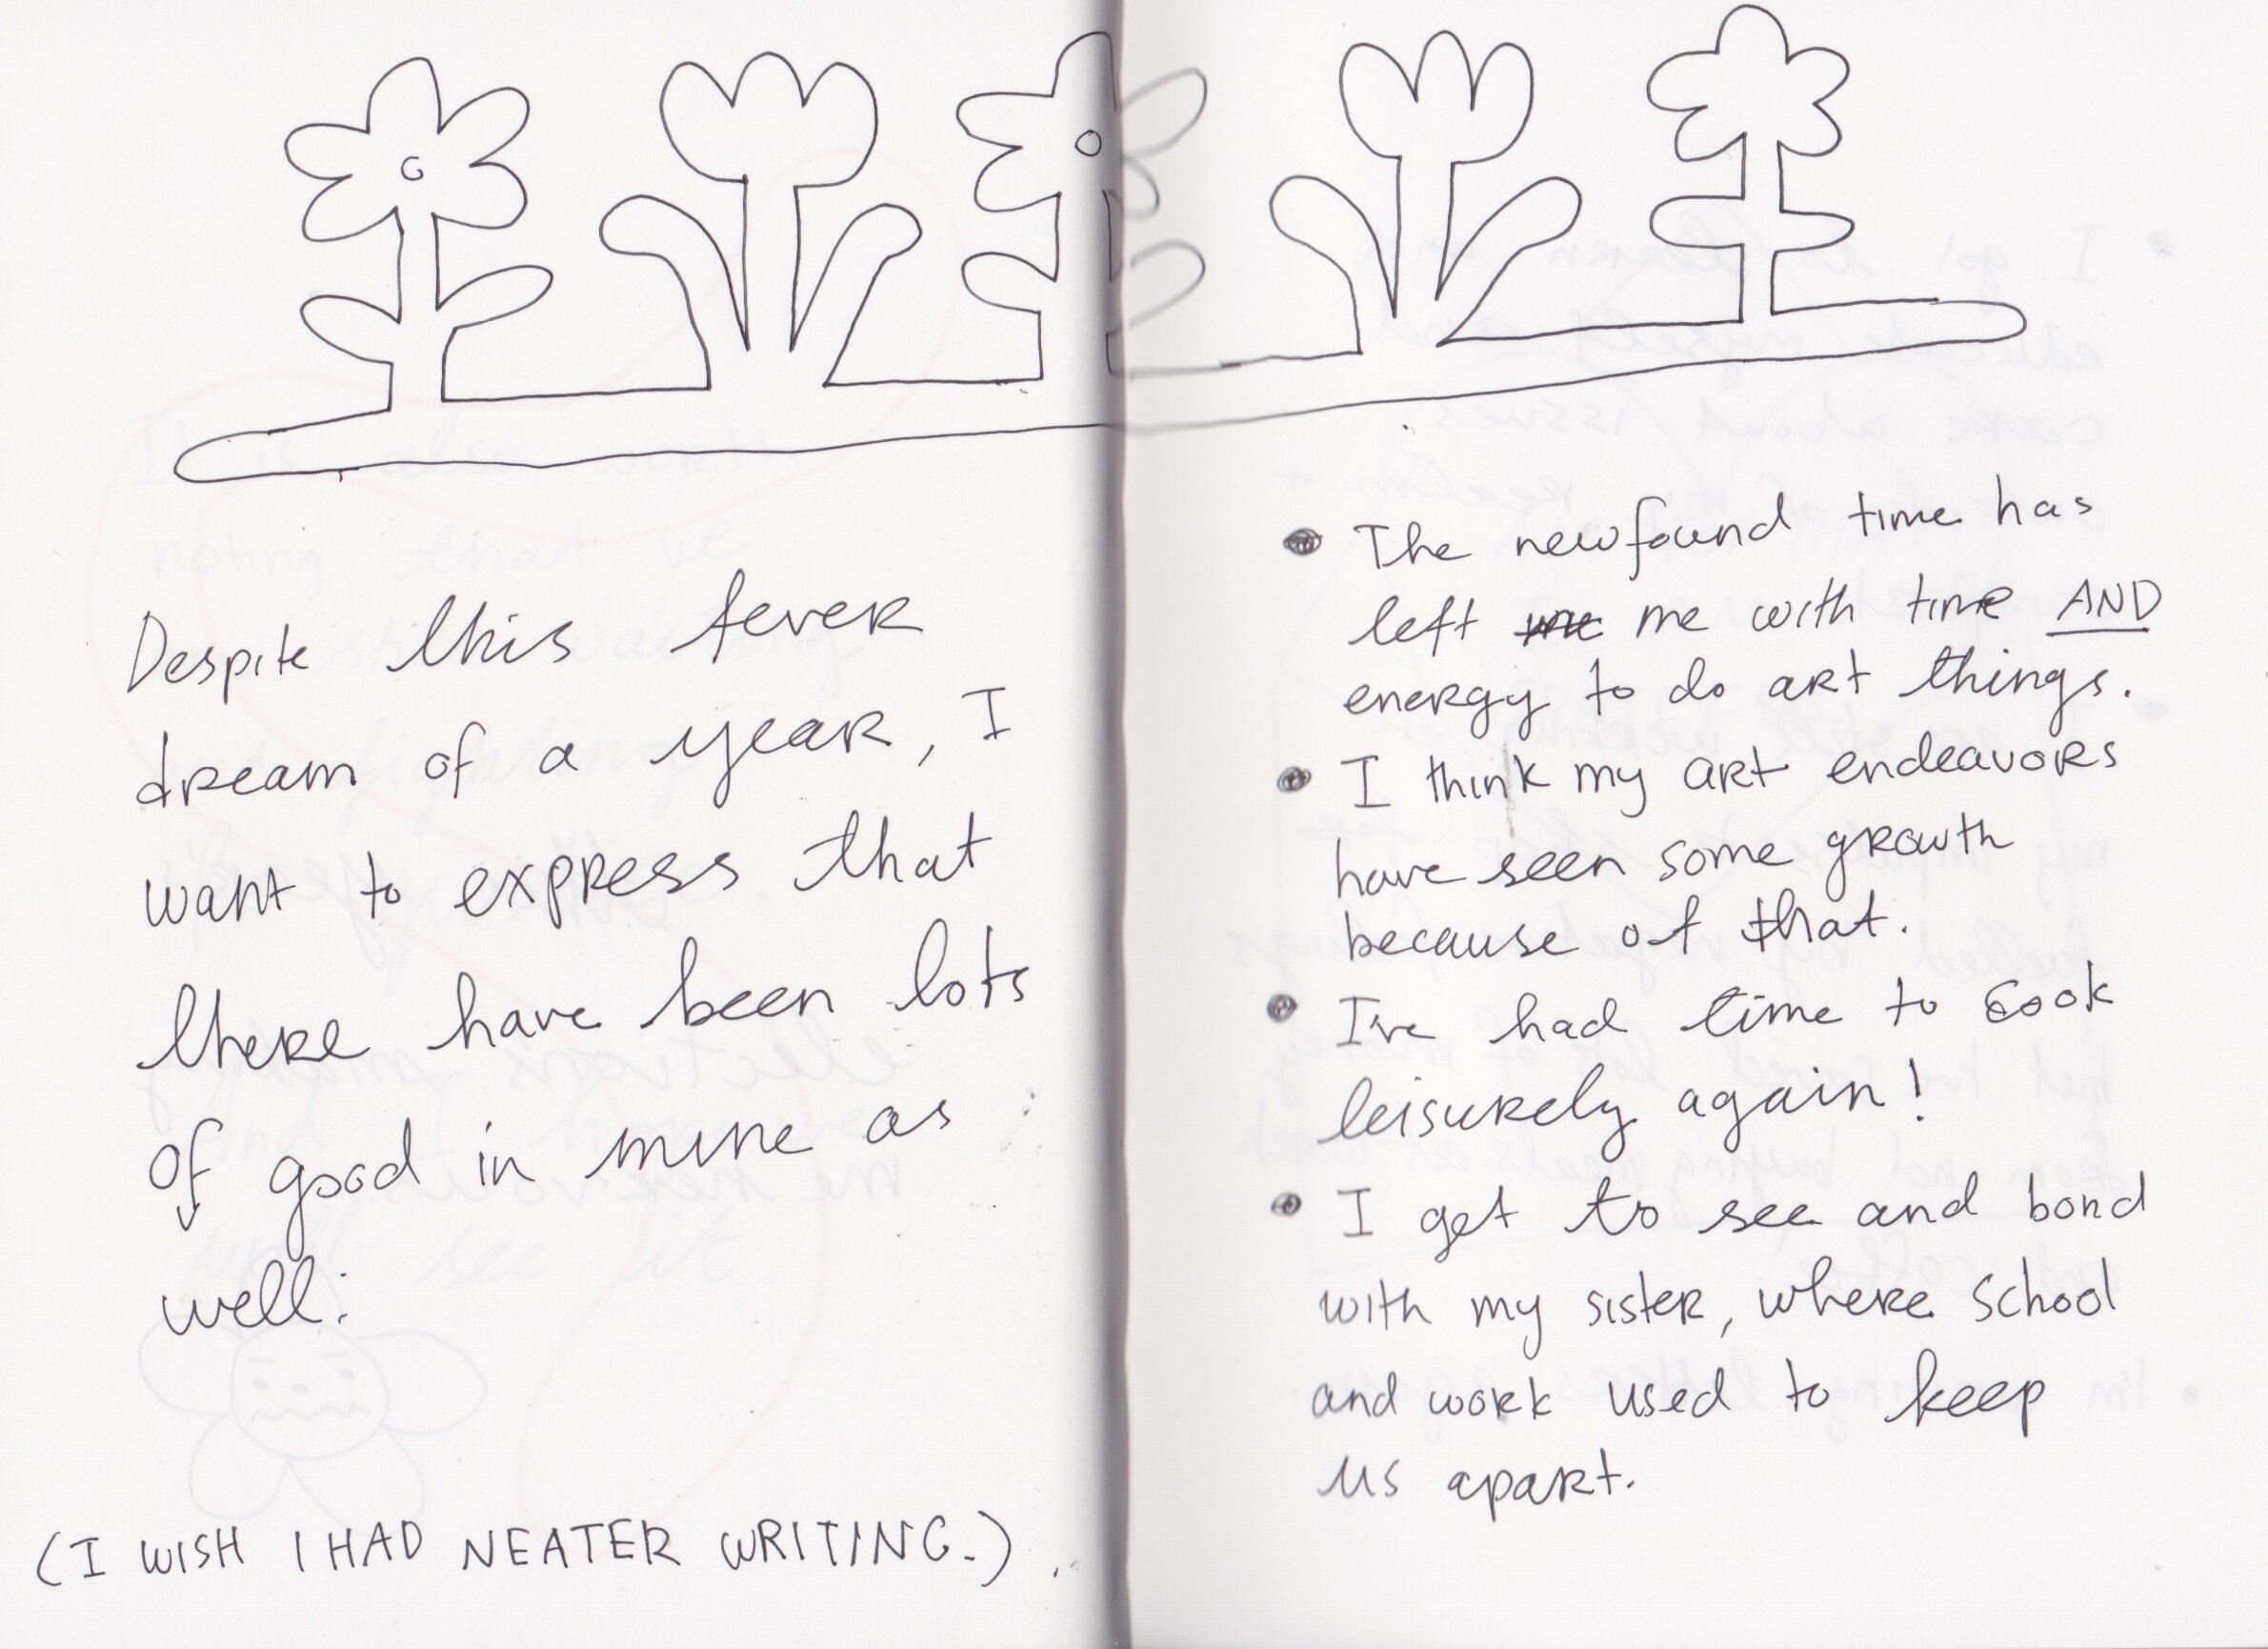 Despite this fever
dream of a year, I
want to express that
there have been lots
of good in mine as
well:
(I WISH I HAD NEATER WRITING.).
• The newfound time has
left me me with time AND
energy to do art things.
• I think my art endeavors
have seen some growth
because of that.
• I've had time to cook
leisurely again!
• I get to see and bond
with my sister, where school
and work used to keep
us apart.